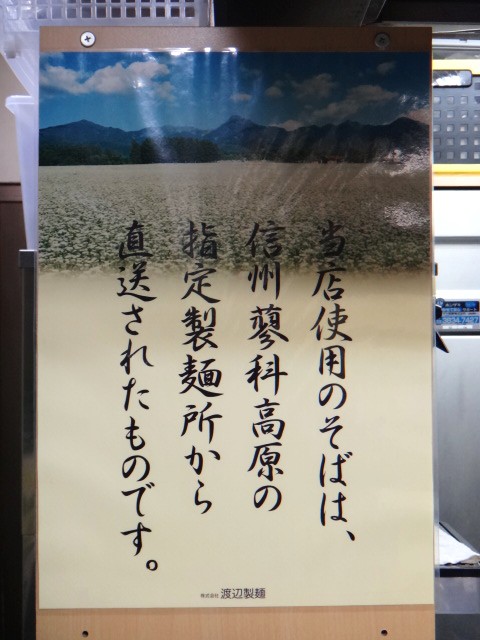 当店使用のそばは、
信州蓼科高原の
指定製麺所から
直送されたものです。
株式会社 渡辺製麺